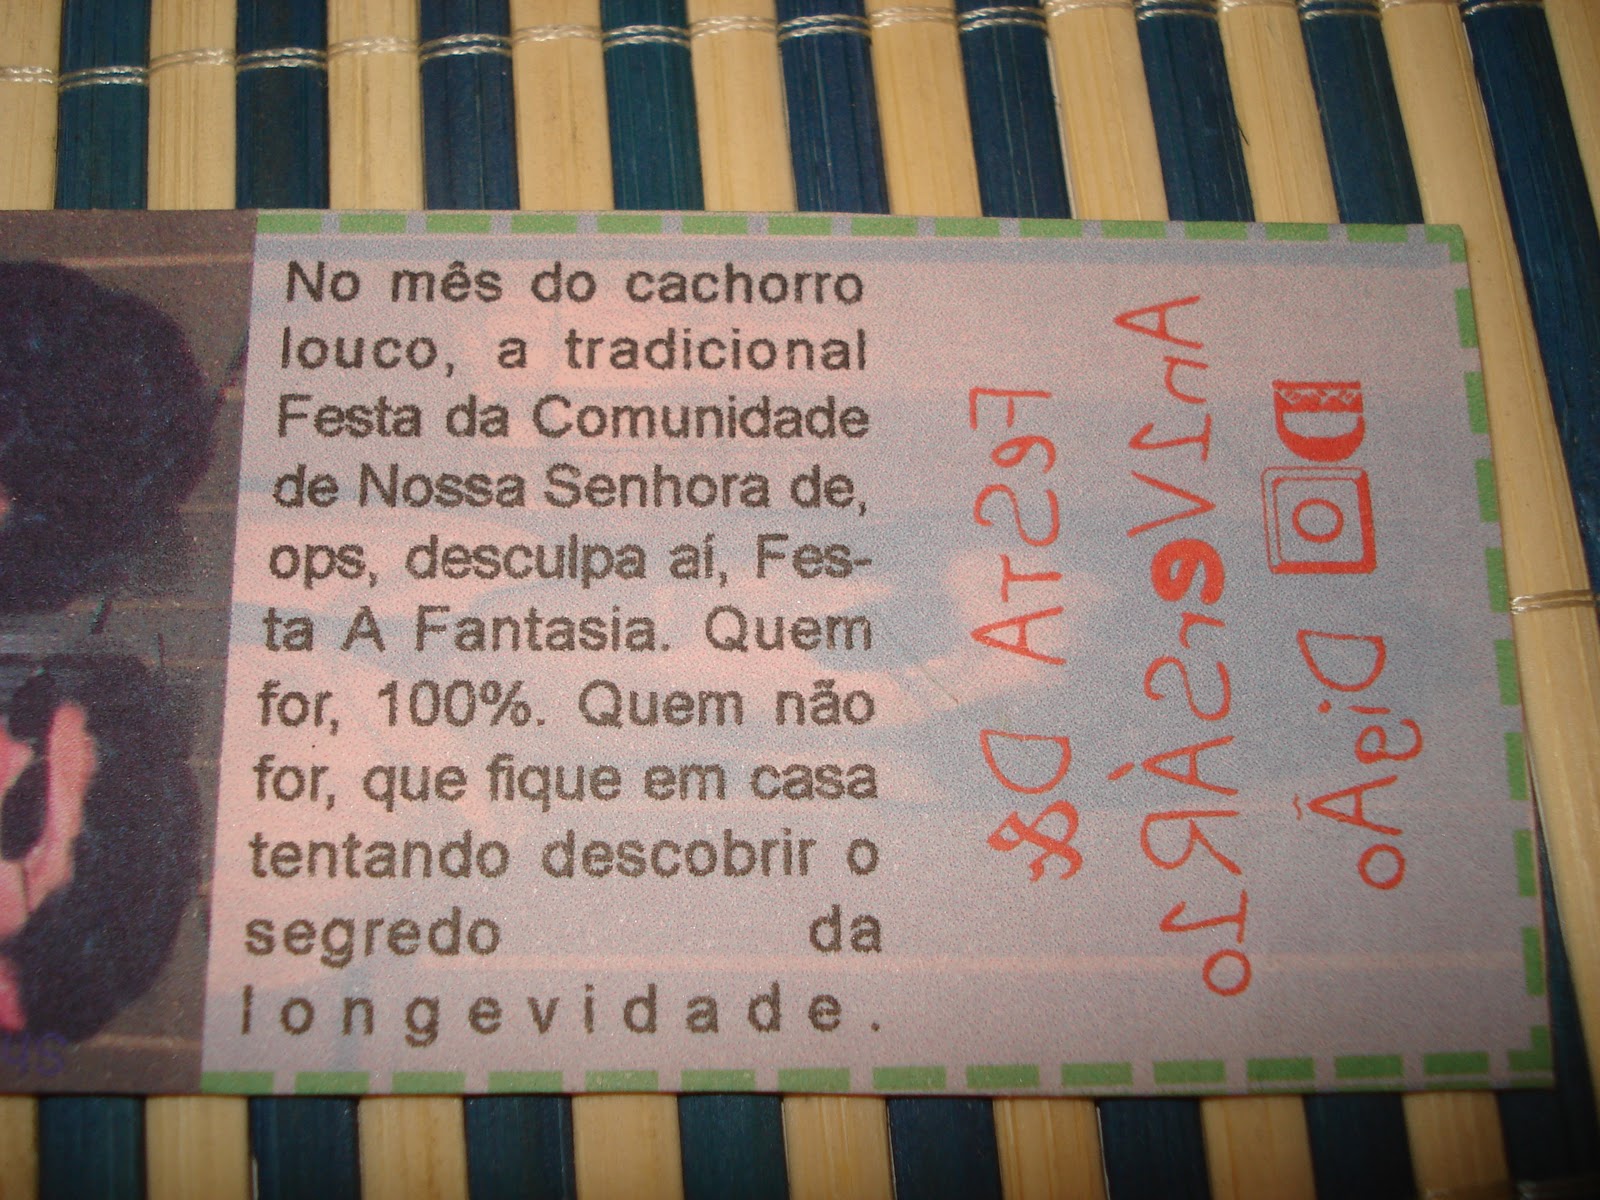 No mês do cachorro
louco, a tradicional
Festa da Comunidade
de Nossa Senhora de,
ops, desculpa aí, Fes-
ta A Fantasia. Quem
for, 100%. Quem não
for, que fique em casa
tentando descobrir o
segredo da
longevidade.
FeSTA De
AnIVerSÁRIo
DO DigÃo